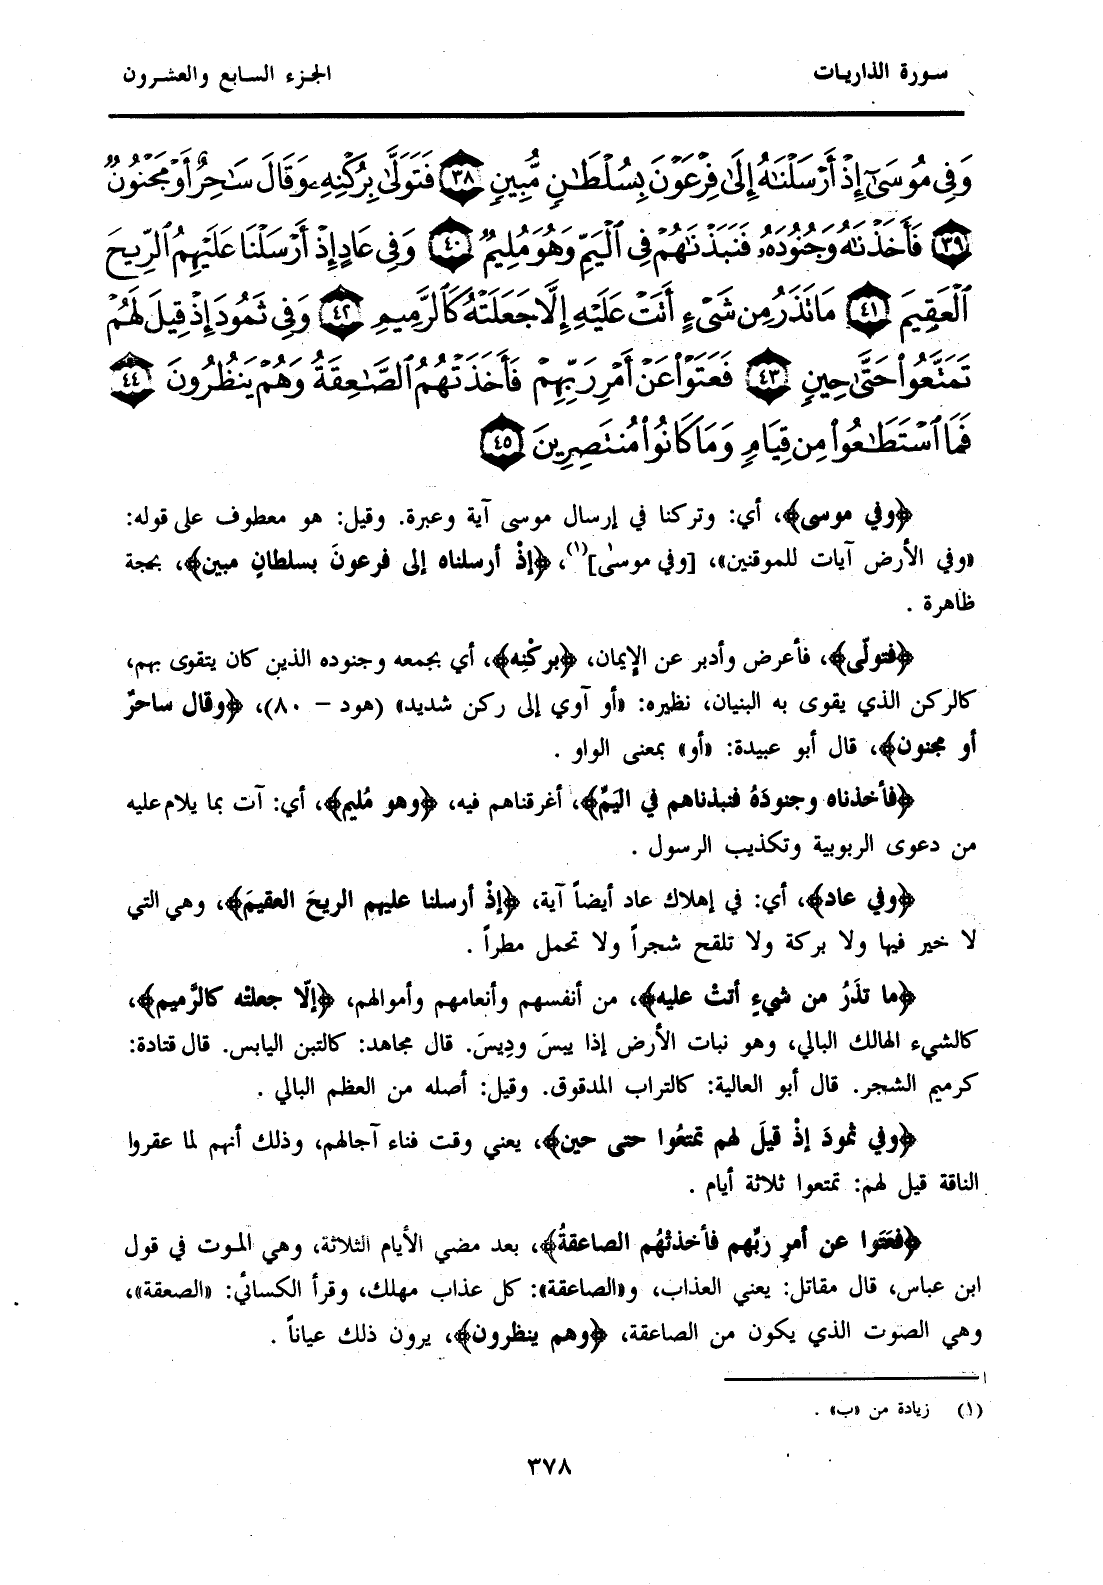 سورة الذاريات
الجزء السابع والعشرون
وَفِي مُوسَىٰٓ إِذْ أَرْسَلْنَٰهُ إِلَىٰ فِرْعَوْنَ بِسُلْطَٰنٖ مُّبِينٖ ٣٨ فَتَوَلَّىٰ بِرُكْنِهِۦ وَقَالَ سَٰحِرٌ أَوْ مَجْنُونٞ
٣٩ فَأَخَذْنَٰهُ وَجُنُودَهُۥ فَنَبَذْنَٰهُمْ فِي ٱلْيَمِّ وَهُوَ مُلِيمٞ ٤٠ وَفِي عَادٍ إِذْ أَرْسَلْنَا عَلَيْهِمُ ٱلرِّيحَ
ٱلْعَقِيمَ ٤١ مَا تَذَرُ مِن شَيْءٍ أَتَتْ عَلَيْهِ إِلَّا جَعَلَتْهُ كَٱلرَّمِيمِ ٤٢ وَفِي ثَمُودَ إِذْ قِيلَ لَهُمْ
تَمَتَّعُوا۟ حَتَّىٰ حِينٖ ٤٣ فَعَتَوْا۟ عَنْ أَمْرِ رَبِّهِمْ فَأَخَذَتْهُمُ ٱلصَّٰعِقَةُ وَهُمْ يَنظُرُونَ ٤٤
فَمَا ٱسْتَطَٰعُوا۟ مِن قِيَامٖ وَمَا كَانُوا۟ مُنتَصِرِينَ ٤٥
﴿وفي موسى﴾، أي: وتركنا في إرسال موسى آية وعبرة. وقيل: هو معطوف على قوله:
«وفي الأرض آيات للموقنين»، [وفي موسىٰ](١)، ﴿إذْ أرسلناه إلى فرعونَ بسلطانٍ مبين﴾، بحجة
ظاهرة .
﴿فتولّى﴾، فأعرض وأدبر عن الإيمان، ﴿بركْنِه﴾، أي بجمعه وجنوده الذين كان يتقوى بهم،
كالركن الذي يقوى به البنيان، نظيره: «أو آوي إلى ركن شديد» (هود – ٨٠)، ﴿وقال ساحرٌ
أو مجنون﴾، قال أبو عبيدة: «أو» بمعنى الواو .
﴿فأخذناه وجنودَهُ فنبذناهم في اليَمِّ﴾، أغرقناهم فيه، ﴿وهو مُليم﴾، أي: آت بما يلام عليه
من دعوى الربوبية وتكذيب الرسول .
﴿وفي عاد﴾، أي: في إهلاك عاد أيضاً آية، ﴿إذْ أرسلنا عليهم الريحَ العقيمَ﴾، وهي التي
لا خير فيها ولا بركة ولا تلقح شجراً ولا تحمل مطراً .
﴿ما تذَرُ من شيءٍ أتتْ عليه﴾، من أنفسهم وأنعامهم وأموالهم، ﴿إلّا جعلتْه كالرَّميم﴾،
كالشيء الهالك البالي، وهو نبات الأرض إذا يبسَ ودِيسَ. قال مجاهد: كالتبن اليابس. قال قتادة:
كرميم الشجر. قال أبو العالية: كالتراب المدقوق. وقيل: أصله من العظم البالي .
﴿وفي ثمودَ إذْ قيلَ لهم تمتعُوا حتى حين﴾، يعني وقت فناء آجالهم، وذلك أنهم لما عقروا
الناقة قيل لهم: تمتعوا ثلاثة أيام .
﴿فعَتَوا عن أمرِ ربِّهم فأخذتْهُم الصاعقةُ﴾، بعد مضي الأيام الثلاثة، وهي الموت في قول
ابن عباس، قال مقاتل: يعني العذاب، و«الصاعقة»: كل عذاب مهلك، وقرأ الكسائي: «الصعقة»،
وهي الصوت الذي يكون من الصاعقة، ﴿وهم ينظرون﴾، يرون ذلك عياناً .
(١) زيادة من «ب» .
٣٧٨